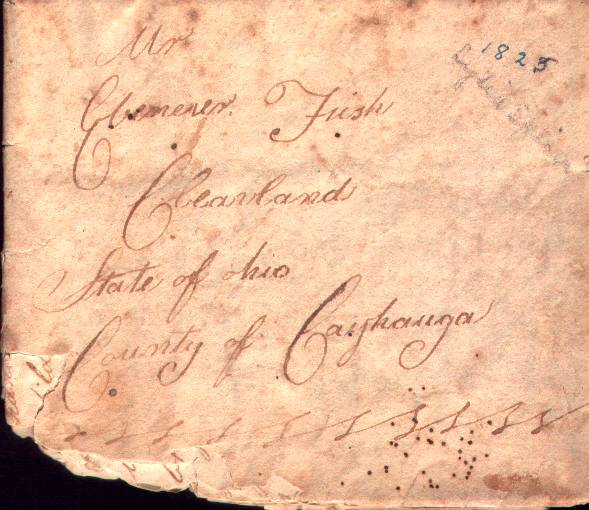 Mr
1825
Ebenezer Fish
Cleavland
State of ohio
County of Cayhauga